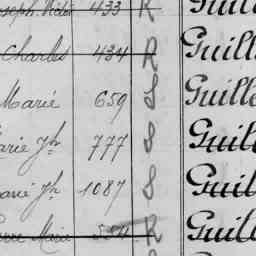 Joseph Victor 433 R Guill
Charles 434 R Guill
Marie 659 S Guille
Marie Jh 777 S Guill
Marie Jh 1087 S Guill
Pierre Marie 584 R Guill